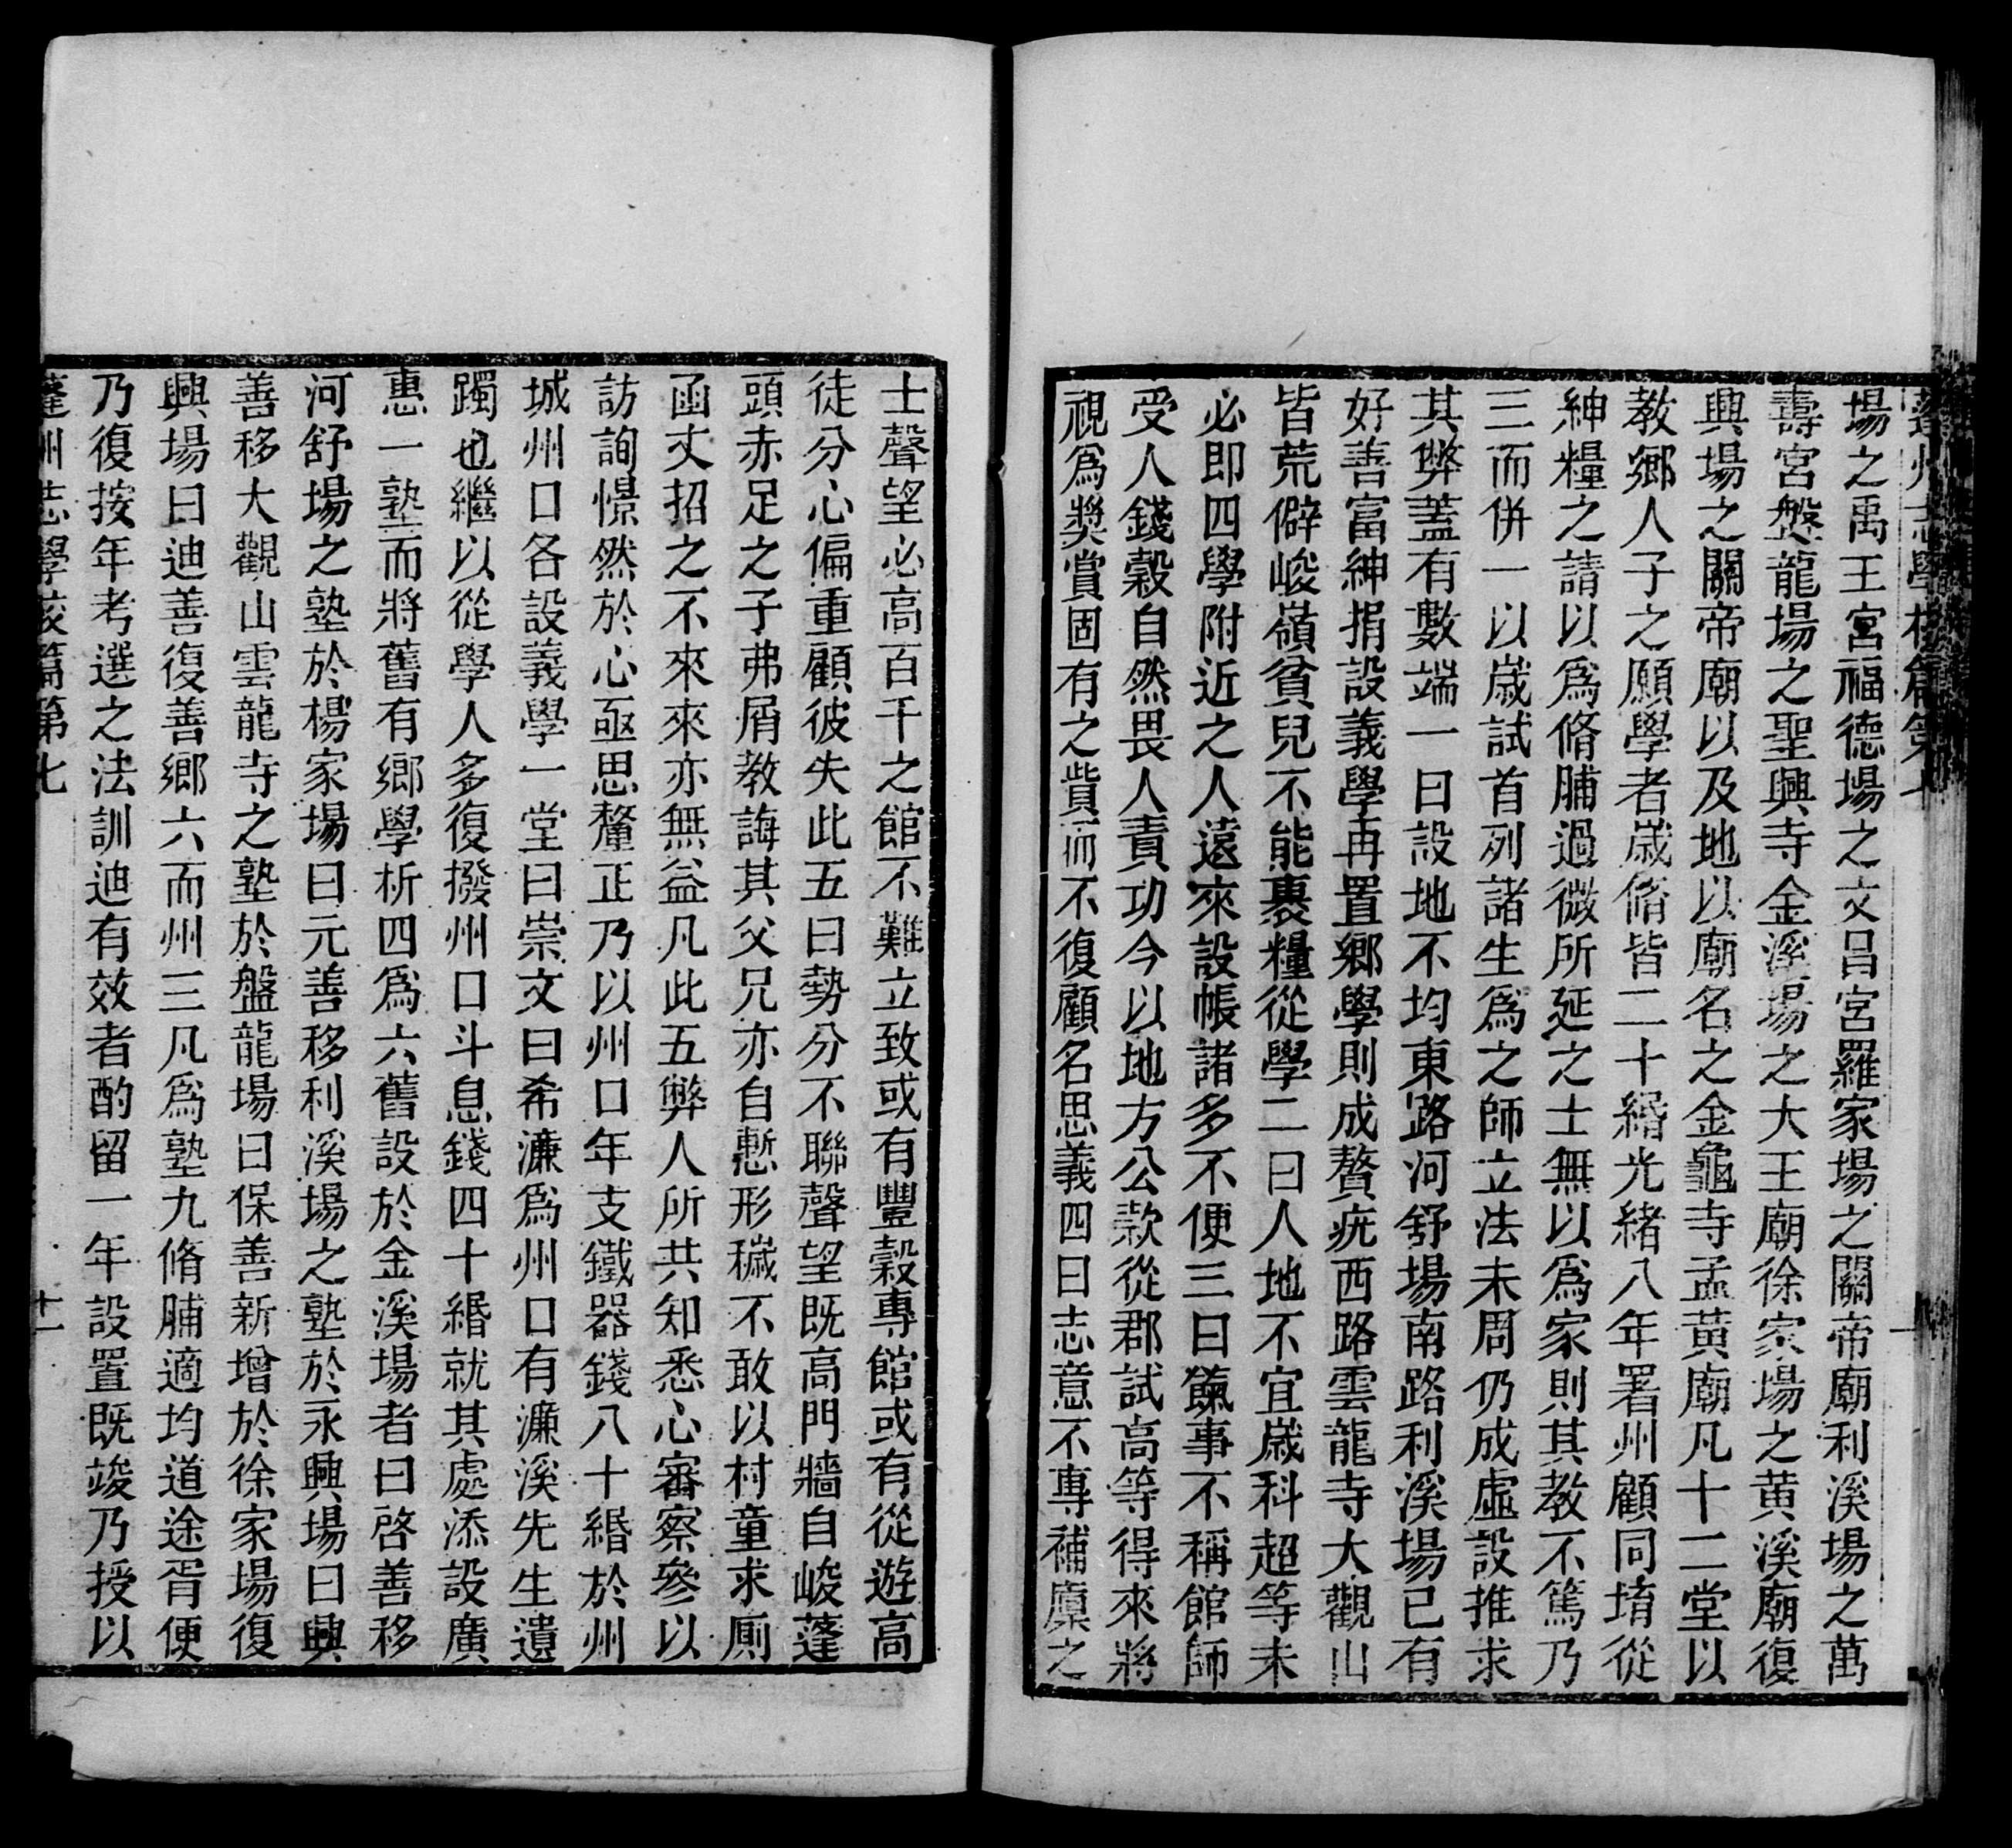 蓬州志學校篇第七
場之禹王宮福德場之文呂宮羅家場之關帝廟利溪場之萬
壽宮盤龍場之聖興寺金溪場之大王廟徐家場之黃溪廟復
興場之關帝廟以及地以廟名之金龜寺孟黃廟凡十二堂以
教鄉人子之願學者歲脩皆二十緡光緒八年署州顧同堉從
紳糧之請以爲脩脯過微所延之士無以爲家則其教不篤乃
三而併一以歲試首列諸生爲之師立法未周仍成虛設推求
其弊蓋有數端一曰設地不均東路河舒場南路利溪場已有
好善富紳捐設義學再置鄉學則成贅疣西路雲龍寺大觀山
皆荒僻峻嶺貧兒不能裹糧從學二曰人地不宜歲科超等未
必即四學附近之人遠來設帳諸多不便三曰餼事不稱館師
受人錢穀自然畏人責功今以地方公款從郡試高等得來將
視爲獎賞固有之貲而不復顧名思義四曰志意不專補廩之
士聲望必高百千之館不難立致或有豐穀專館或有從遊高
徒分心偏重顧彼失此五曰勢分不聯聲望既高門牆自峻蓬
頭赤足之子弗屑教誨其父兄亦自慙形穢不敢以村童求厠
函丈招之不來來亦無益凡此五弊人所共知悉心審察參以
訪詢憬然於心亟思釐正乃以州口年支鐵器錢八十緡於州
城州口各設義學一堂曰崇文曰希濂爲州口有濂溪先生遺
躅也繼以從學人多復撥州口斗息錢四十緡就其處添設廣
惠一塾而將舊有鄉學析四爲六舊設於金溪場者曰啓善移
河舒場之塾於楊家場曰元善移利溪場之塾於永興場曰興
善移大觀山雲龍寺之塾於盤龍場曰保善新增於徐家場復
興場曰迪善復善鄉六而州三凡爲塾九脩脯適均道途胥便
乃復按年考選之法訓迪有效者酌留一年設置既竣乃授以
蓬州志學校篇第七
十一